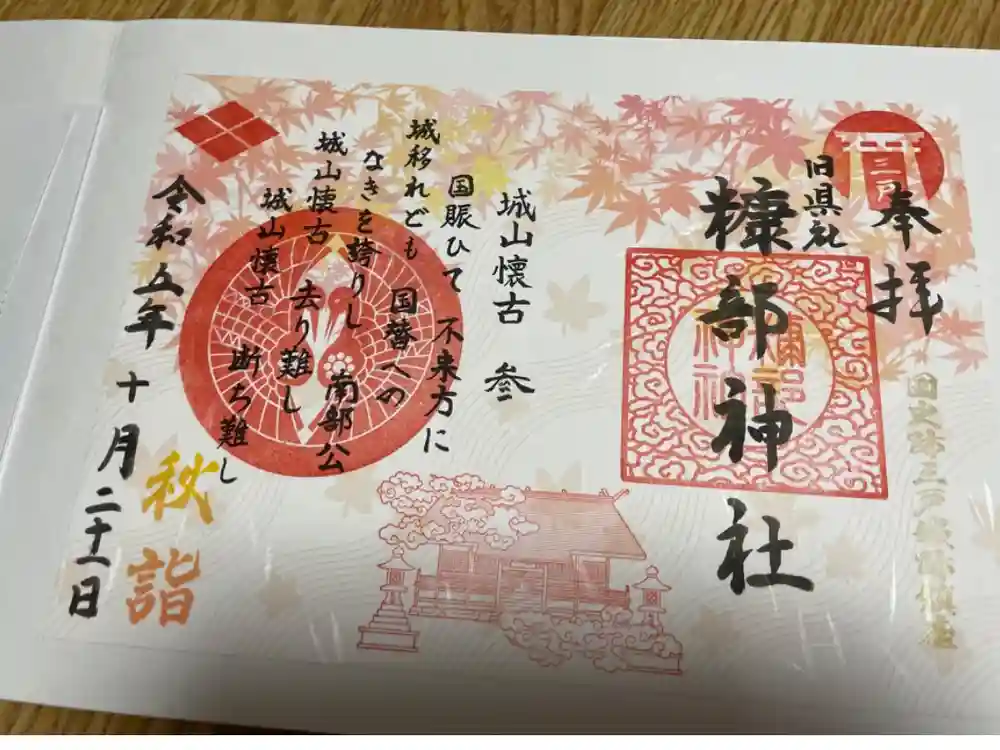 奉拝
三戸
旧県社
糠部神社
城山懐古 叁
国賑ひて 不来方に
城移れども 国替への
なきを誇りし 南部公
城山懐古 去り難し
城山懐古 断ち難し
令和五年十月二十一日
秋詣